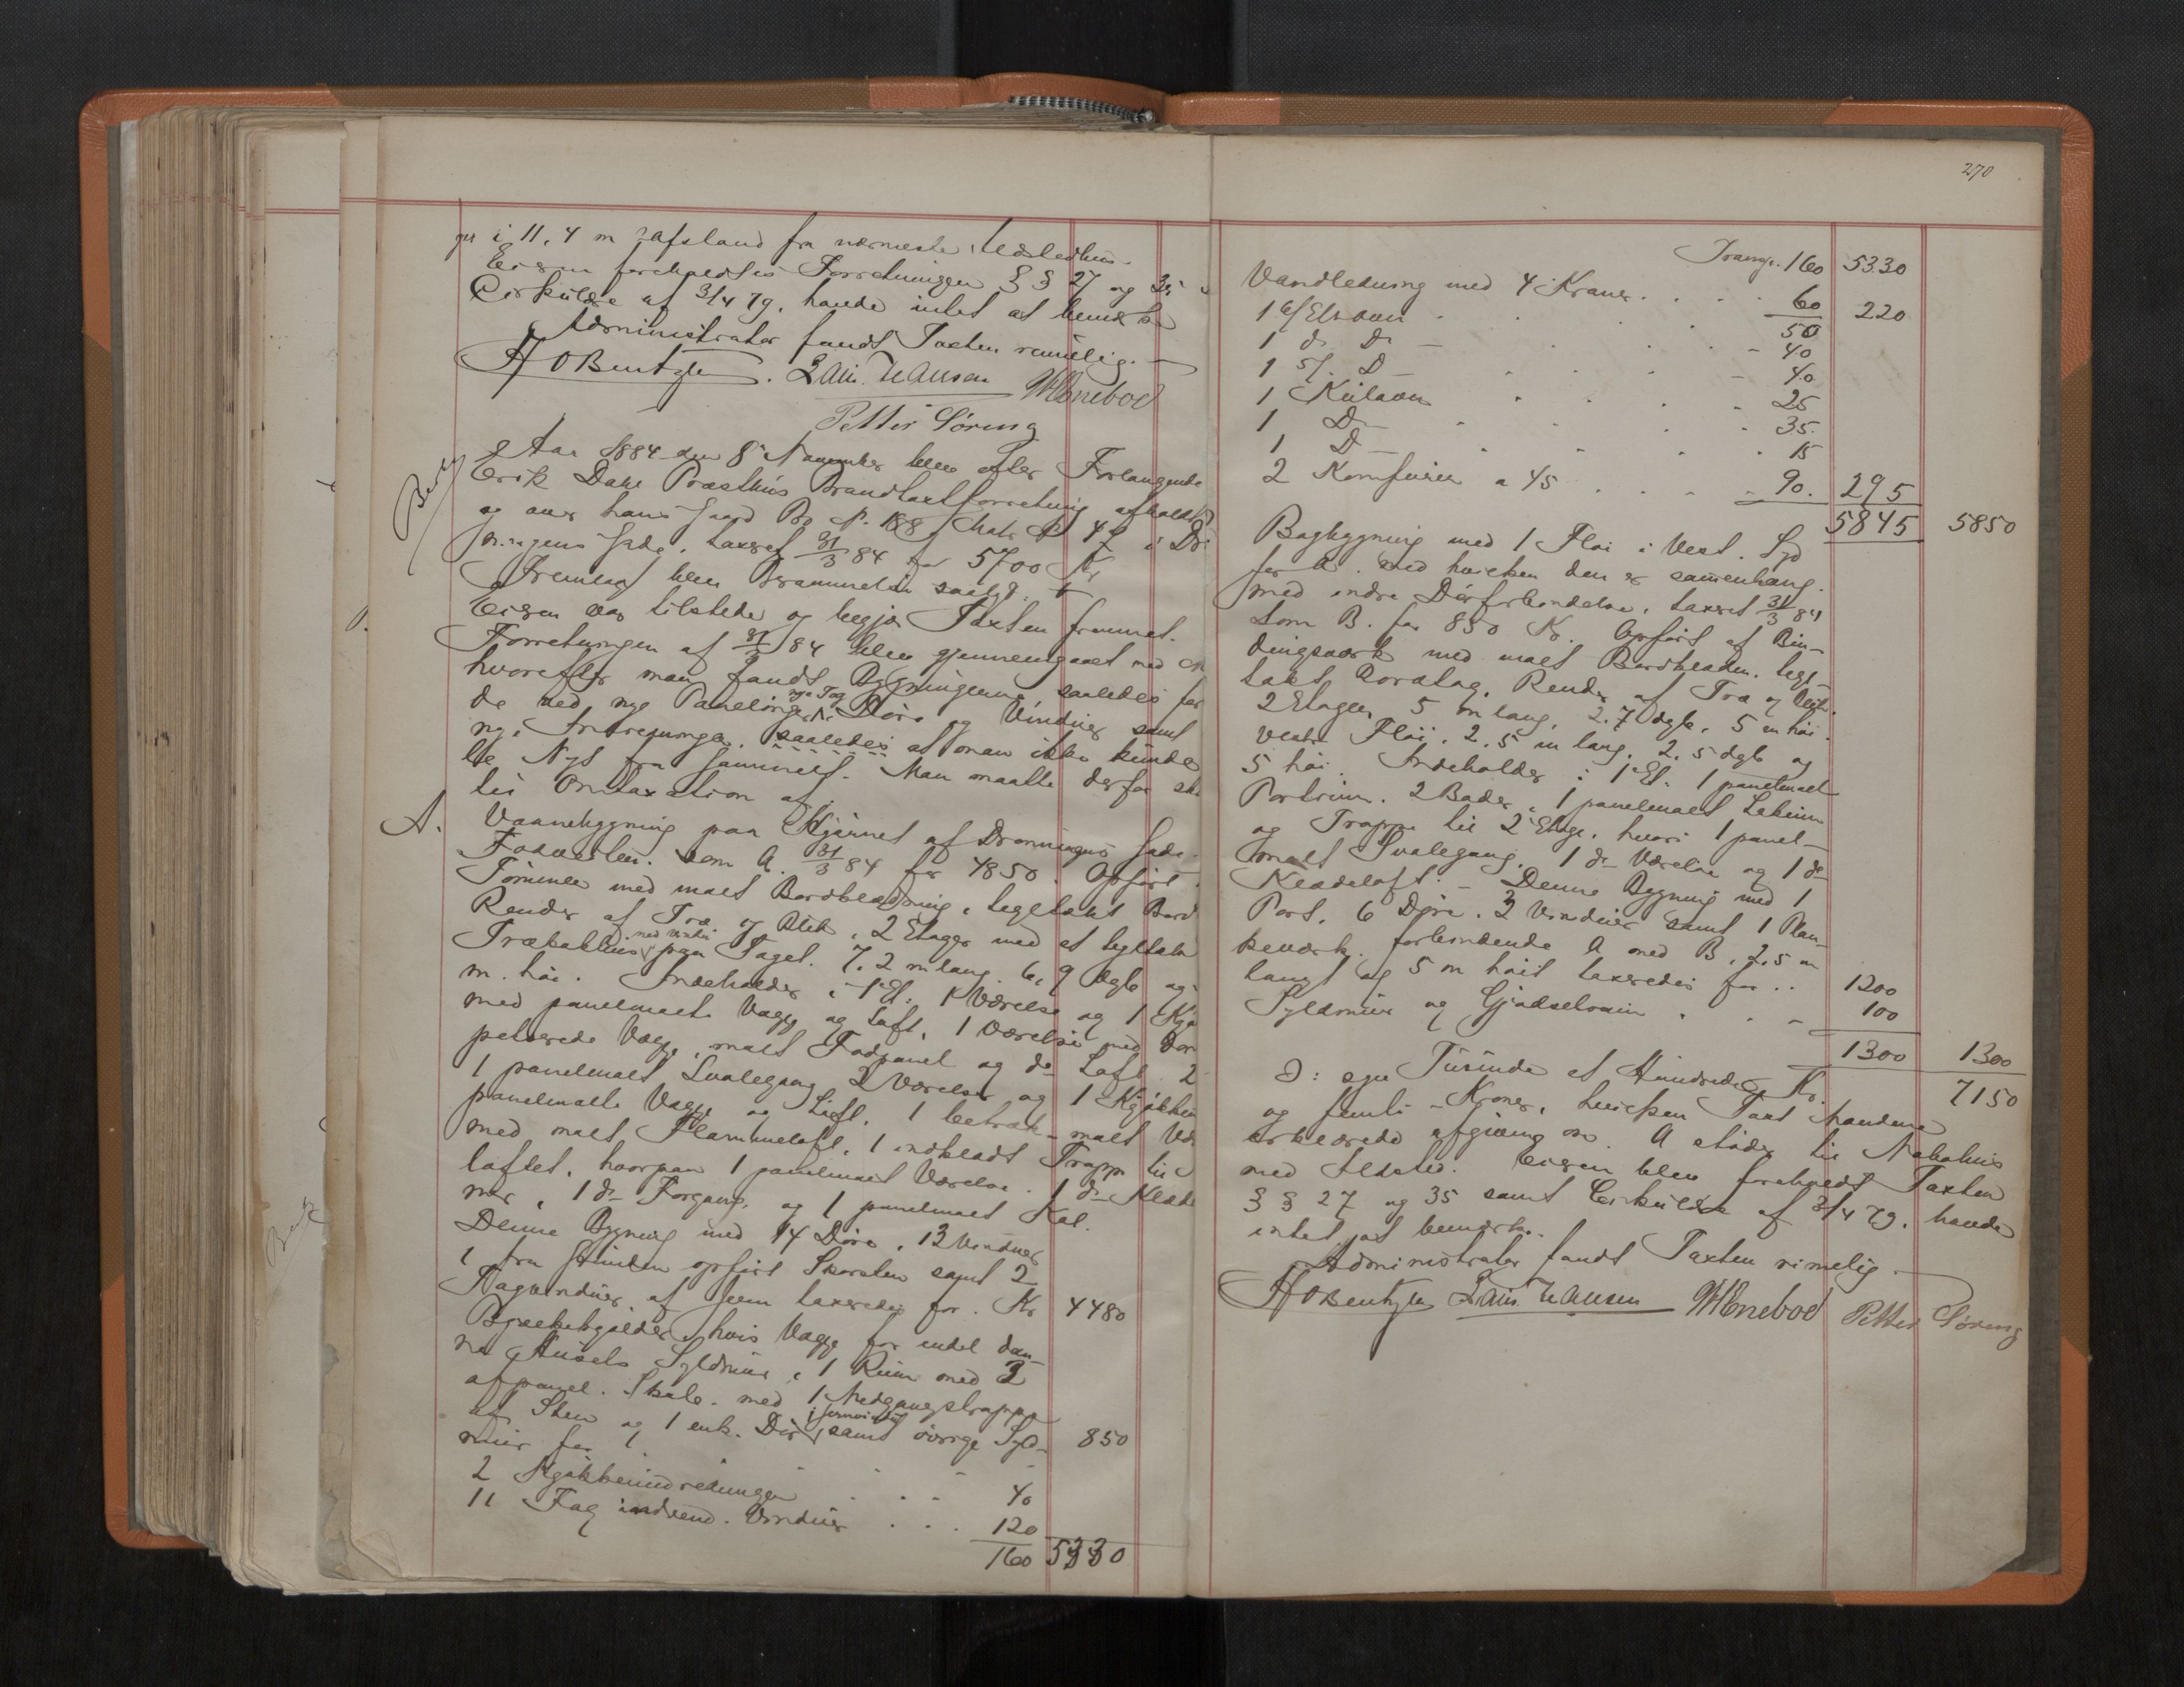 i 11,4 m Afstand fra nærmeste Ildstedhus.
Eieren foreholdtes Forretningen § § 27 og 35
Cirkulære af 3/4 79, havde intet at bemærke
Administrator fandt Taxten rimelig. —
H O Bentzen. Laur. Hansen
Petter Søreng
Aar 1884 den 8de November blev efter Forlangende
Erik Dahl Præsthus Brandtaxtforretning afholdt
og over hans Gaard Br. N. 188, Matr. N. 4 i Dron
ningens Gade, taxeret 31/3 84 for 5700 Kr
Fremlagt blev
Eieren var tilstede og begjær Taxten fremmet.
Forretningen af 31/3 84 blev gjennemgaaet med
hvorefter man fandt Bygningerne saaledes for
de med nye Panelinger, nye Tag Døre og Vinduer samt
ny Indredninger, saaledes at man ikke kunde
Nyt fra Gammelt. Man maatte derfor
til Omtaxation af
A. Vaanebygning paa Hjørnet af Dronningens Gade
som A. 31/3 84 for 4850. Opført
Tømmer med malt Bordklædning, teglhakt Bord
Render af Træ og Blik, 2 Etager med et tegltakt
med Vindu paa Taget. 7,2 m lang. 6,9 dyb og
m. høi. Indeholder i 1 Et: 1 Værelse og 1 Kjø
med panelmalte Vægge og Loft, 1 Værelse med
petserede Vægge, malt Fodpanel og do Loft. 2
1 panelmalt Svalegang 2 Værelser og 1 Kjøkken
panelmalte Vægge og Loft, 1 betræk-malt Væ
med malt Flammeloft, 1 indklædt Trappe til
loftet, hvorpaa 1 panelmalt Værelse. 1 do Klæde
1 do Forgang, og 1 panelmalt
Denne Bygning med 14 Døre, 13 Vinduer
1 fra Grunden opført Skorsten samt 2
Tagvinduer af Jern taxeredes for. Kr 4480
hvis Vægge for endel dan-
ne Husets Syldmur, 1 Rum med 3
afpanel. Skale. med 1 Nedgangstrappe
af Sten og 1 enk. Dør samt øvrige Syld-
mur for 850
2 Kjøkkenindredninger . . . 40
11 Fag indvend. Vinduer . . . 120
160 5330
270
Transp. 160 5330
Vandledning med 4 Kraner . . . . 60 220
1 6/ Et ovn . . . 50
1 do Do — . . . 40
1 5/ D — . . . 40
1 Kulovn . . . 25
1 Do — . . . 35.
1 D — . . . 15
2 Komfurer a 45 . . . 90. 295
5845 5850
Bagbygning med 1 Fløi i Vest. Syd
for A. med hvilken den er sammenhæng.
med indre Dørforbindelse, taxeret 31/3 84
som B. for 850 Kr. Opført af Bin-
dingsværk med malt Bordklædn. tegl-
takt Bordtag, Render af Træ og
2 Etager, 5 m lang, 2.7 dyb, 5 m høi.
Vestre Fløi. 2.5 m lang. 2.5 dyb og
5 høi. Indeholder i 1 Et: 1 panelmalt
Portrum. 2 Boder, 1 panelmalt
og Trappe til 2 Etage. hvori 1 panel-
malt Svalegang, 1 do Værelse og 1 do
Klædeloft. — Denne Bygning med 1
Port, 6 Døre, 3 Vinduer samt 1 Plan-
keværk, forbindende A med B, 2,5 m
langt og 5 m høit taxeredes for . . 1200
Syldmur og Gjødselrum . . — 100
1300 1300
ɔ: syv Tusinde et Hundrede Kr. 7150
og femti — Kroner, hvilken Taxt Mændene
erklærede afgiven A støder til Nabohus
med Ildsted. Eieren blev foreholdt Taxten
§ § 27 og 35 samt Cirkulære af 3/4 79. havde
intet at bemærke.
Administrator fandt Taxten rimelig —
H O Bentzen Laur. Hansen Petter Søreng